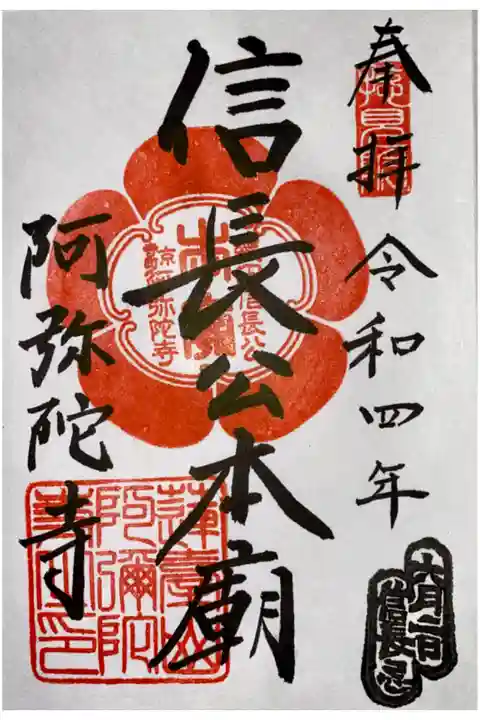 奉拝
令和四年
六月二日
信長忌
信長公本廟
信長公
本廟
京都
阿弥陀寺
阿弥陀寺
蓮臺山
阿彌陀